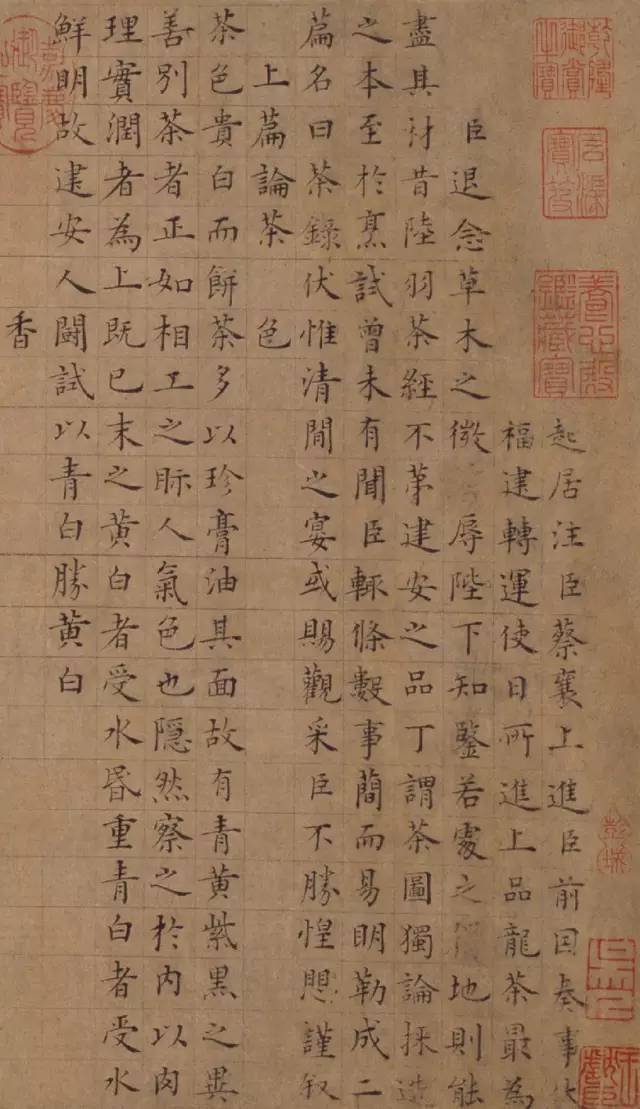 乾隆御賞之寶
石渠寶笈
養心殿鑑藏寶
起居注臣蔡襄上進臣前因奏事伏
福建轉運使日所進上品龍茶最為
臣退念草木之微辱陛下知鑒若處之得地則能
盡其材昔陸羽茶經不苐建安之品丁謂茶圖獨論採造
之本至於烹試曾未有聞臣輒條數事簡而易明勒成二
篇名曰茶錄伏惟清閒之宴或賜觀采臣不勝惶懼謹叙
上篇論茶
色
茶色貴白而餅茶多以珍膏油其面故有青黃紫黑之異
善別茶者正如相工之眎人氣色也隱然察之於內以肉
理實潤者為上既已末之黃白者受水昏重青白者受水
鮮明故建安人鬪試以青白勝黃白
香